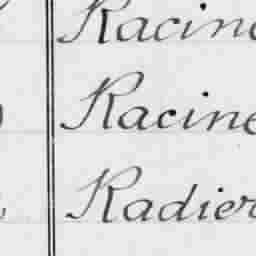 Racine
Racine
Radier